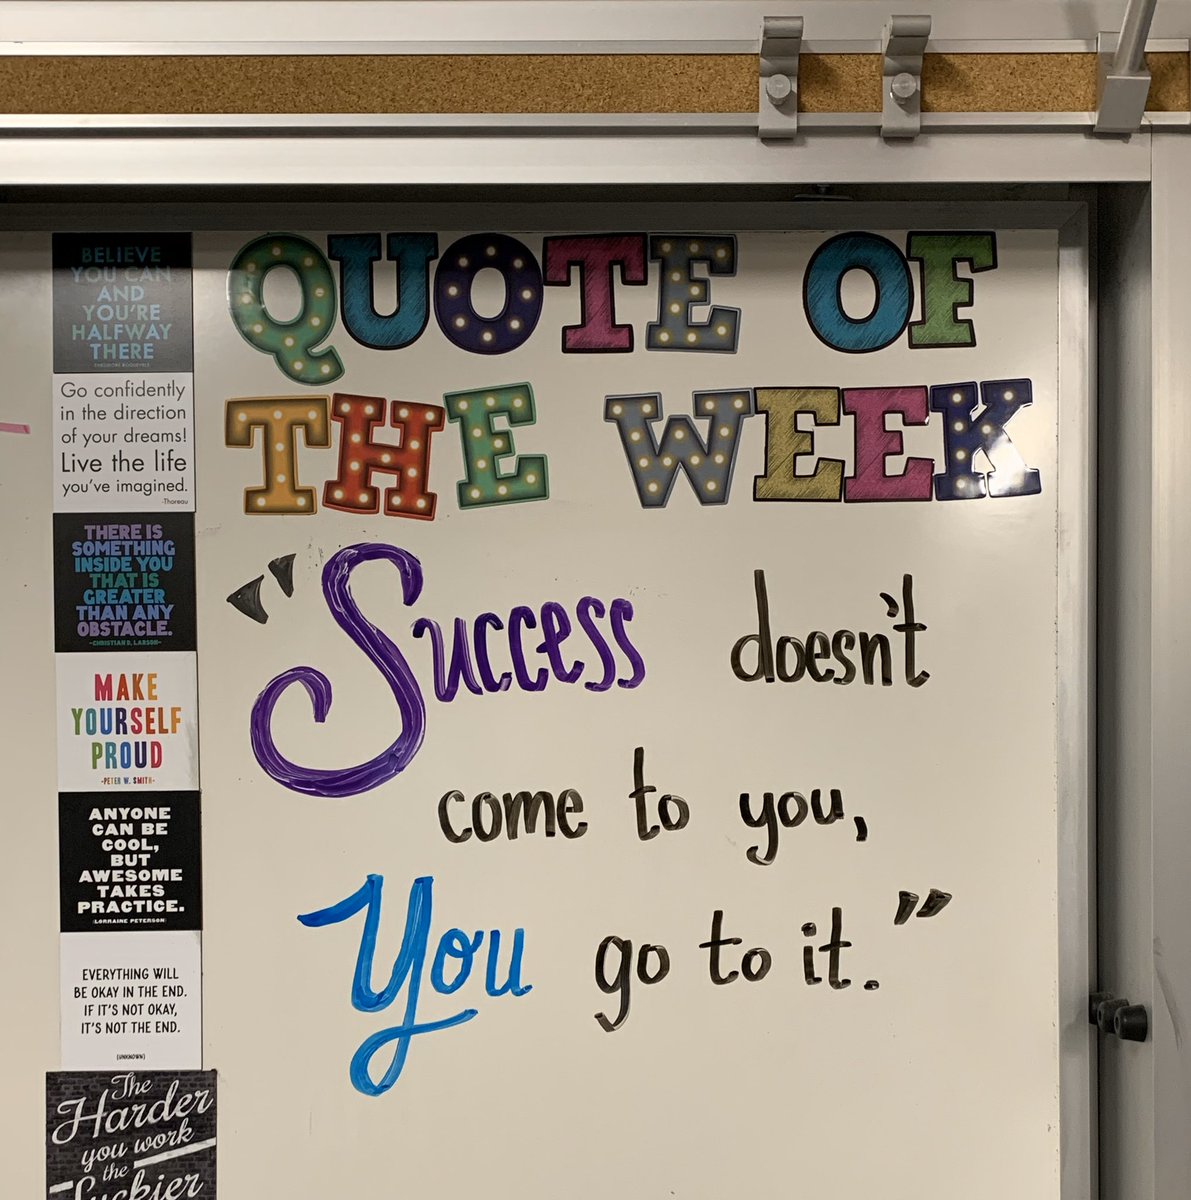 QUOTE OF
THE WEEK
"Success doesn't
come to you,
You go to it."
BELIEVE
YOU CAN
AND
YOU'RE
HALFWAY
THERE
-THEODORE ROOSEVELT
Go confidently
in the direction
of your dreams!
Live the life
you've imagined.
-Thoreau
THERE IS
SOMETHING
INSIDE YOU
THAT IS
GREATER
THAN ANY
OBSTACLE.
-CHRISTIAN D. LARSON-
MAKE
YOURSELF
PROUD
-PETER W. SMITH-
ANYONE
CAN BE
COOL,
BUT
AWESOME
TAKES
PRACTICE.
(LORRAINE PETERSON)
EVERYTHING WILL
BE OKAY IN THE END.
IF IT'S NOT OKAY,
IT'S NOT THE END.
(UNKNOWN)
The
Harder
you work
the
Luckier